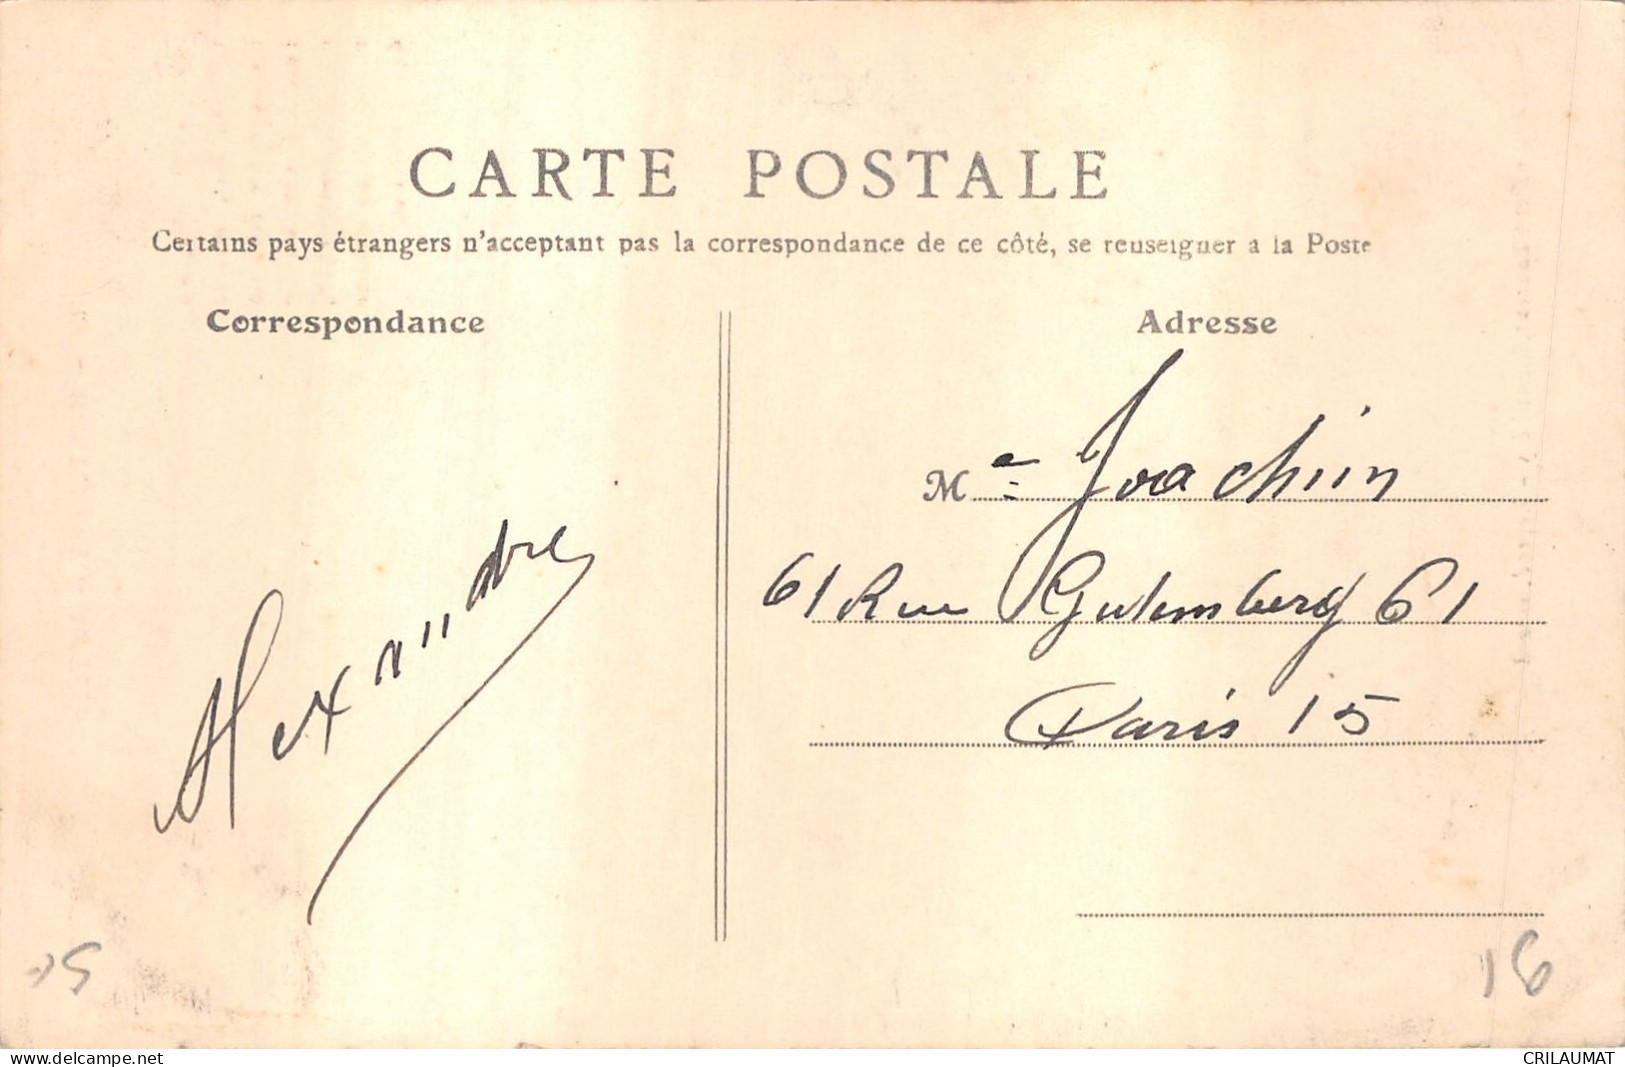 CARTE POSTALE
Certains pays étrangers n'acceptant pas la correspondance de ce côté, se renseigner a la Poste
Correspondance
Adresse
Me Joachim
61 Rue Gutemberg 61
Paris 15
Alexandre
15
18
www.delcampe.net
CRILAUMAT